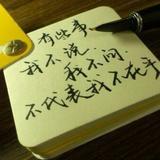 有些事
我不说
我不问
不代表我不在乎